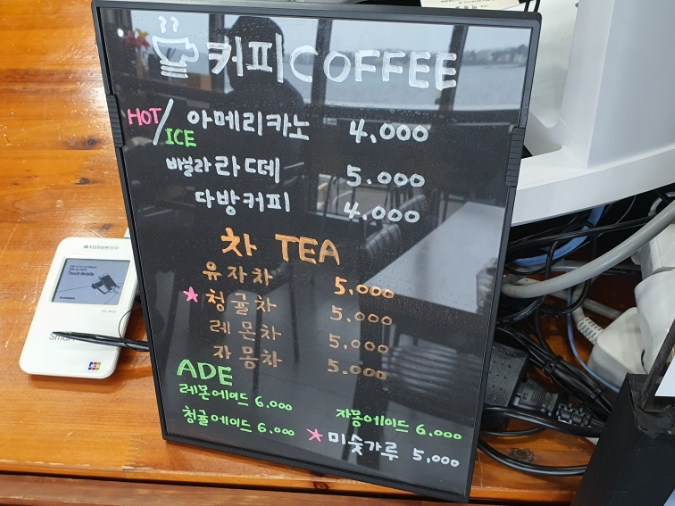 커피 COFFEE
HOT/ICE 아메리카노 4,000
바닐라라떼 5,000
다방커피 4,000
차 TEA
유자차 5,000
★청귤차 5,000
레몬차 5,000
자몽차 5,000
ADE
레몬에이드 6,000 자몽에이드 6,000
청귤에이드 6,000 ★미숫가루 5,000
Touch Mobile
JCB